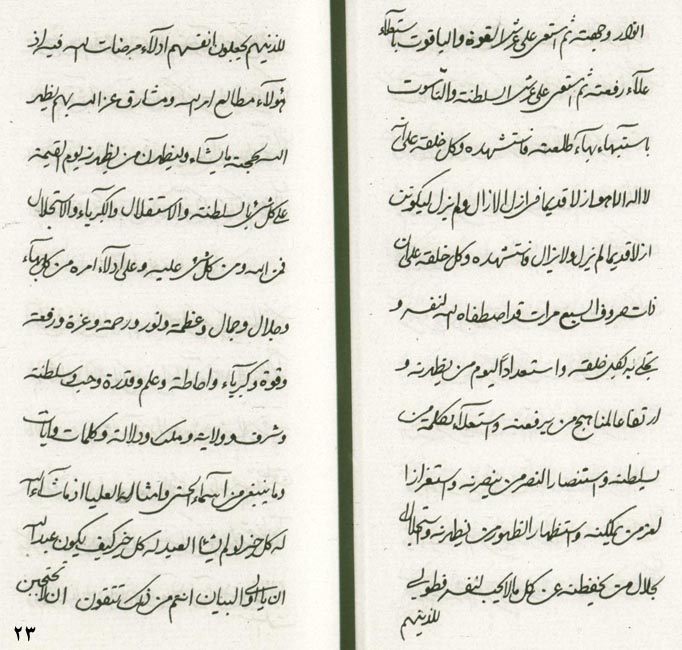 انوار وجهته ثم استعى على عرش القوة والياقوت باستعلاء
علاء رفعته ثم استعى على عرش السلطنة والناسوت
باستبهاء بهاء طلعته فاستشهده وكل خلقه على انه
لا اله الا هو ازلا قديما في ازل الازال ولم يزل ليكونن
ازلا قديما لم يزل ولا يزال فاستشهده وكل خلقه على ان
ذات حروف السبع مرات قد اصطفاه الله لنفسه و
تجلى به لكل خلقه واستعدادا ليوم من يظهرنه و
ارتفاعا لمناهج من يرفعنه واستعلاء لكلمة من
يسلطنه واستنصارا لنصر من ينصرنه واستعزازا
لعز من يمكننه واستظهارا لظهور من يظهرنه واستجلالا
بجلال من يحفظنه عن كل ما لا يحب لنفسه فطوبى
للذينهم
للذينهم يجعلون انفسهم ادلاء مرضات الله فيه اذ
هؤلاء مطالع امر الله ومشارق عز الله بهم يظهر
الله بحجته ما يشاء وليظهرن من يظهرنه يوم القيمة
على كل شيء بالسلطنة والاستقلال والكبرياء والاستجلال
فمن الله ومن كل شيء عليه وعلى ادلاء امره من كل بهاء
وجلال وجمال وعظمة ونور ورحمة وعزة ورفعة
وقوة وكبرياء واحاطة وعلم وقدرة وحب وسلطنة
وشرف وولاية وملك ودلالة وكلمات وايات
وما ينبغي من اسماء الحسنى وامثاله العليا اذ ما شاء الله
له كل خير لو لم يشأ العبد له كل خير كيف يكون عبد الله
ان يا اولي البيان انتم من ذلك تتقون ان لا تحتجبن
٢٣